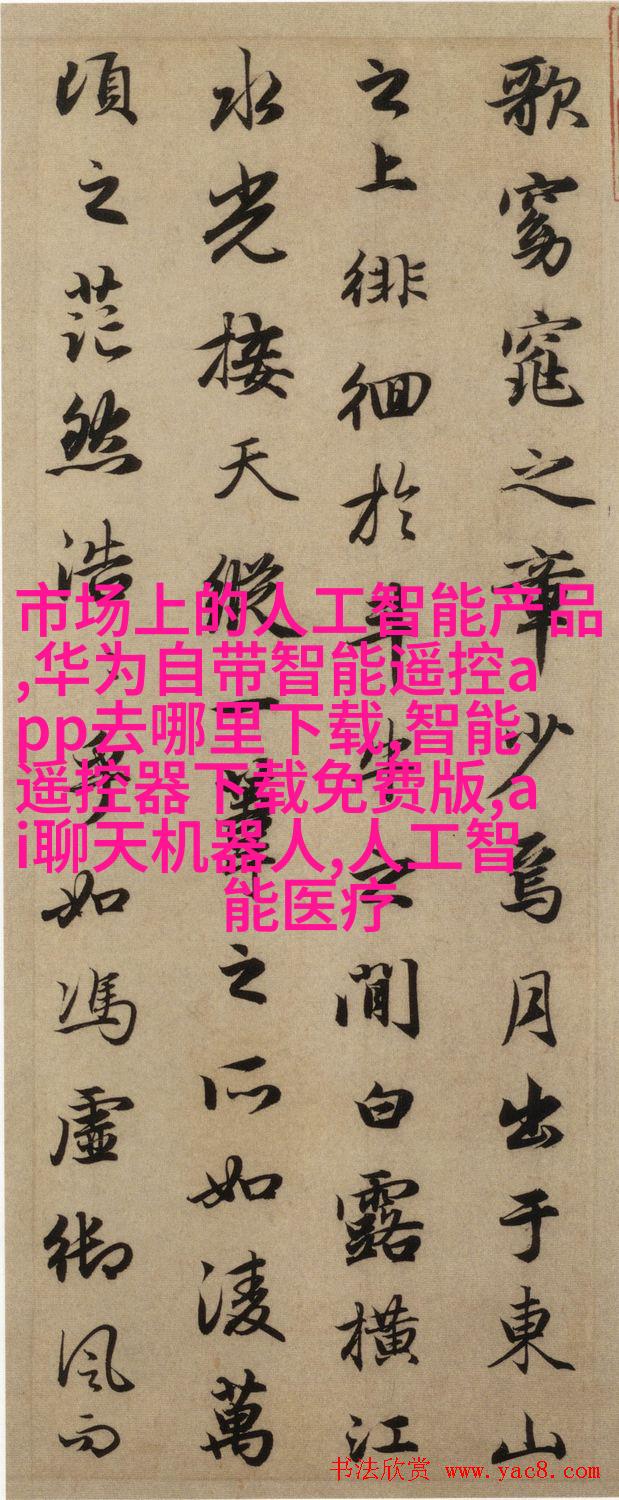 歌窈窕之章少焉月出于東山
之上徘徊於斗牛之間白露橫江
水光接天縱一葦之所如淩萬
頃之茫然浩浩乎如馮虛御風而
市场上的人工智能产品
,华为自带智能遥控a
pp去哪里下载,智能
遥控器下载免费版,a
i聊天机器人,人工智
能医疗
书法欣赏 www.yac8.com